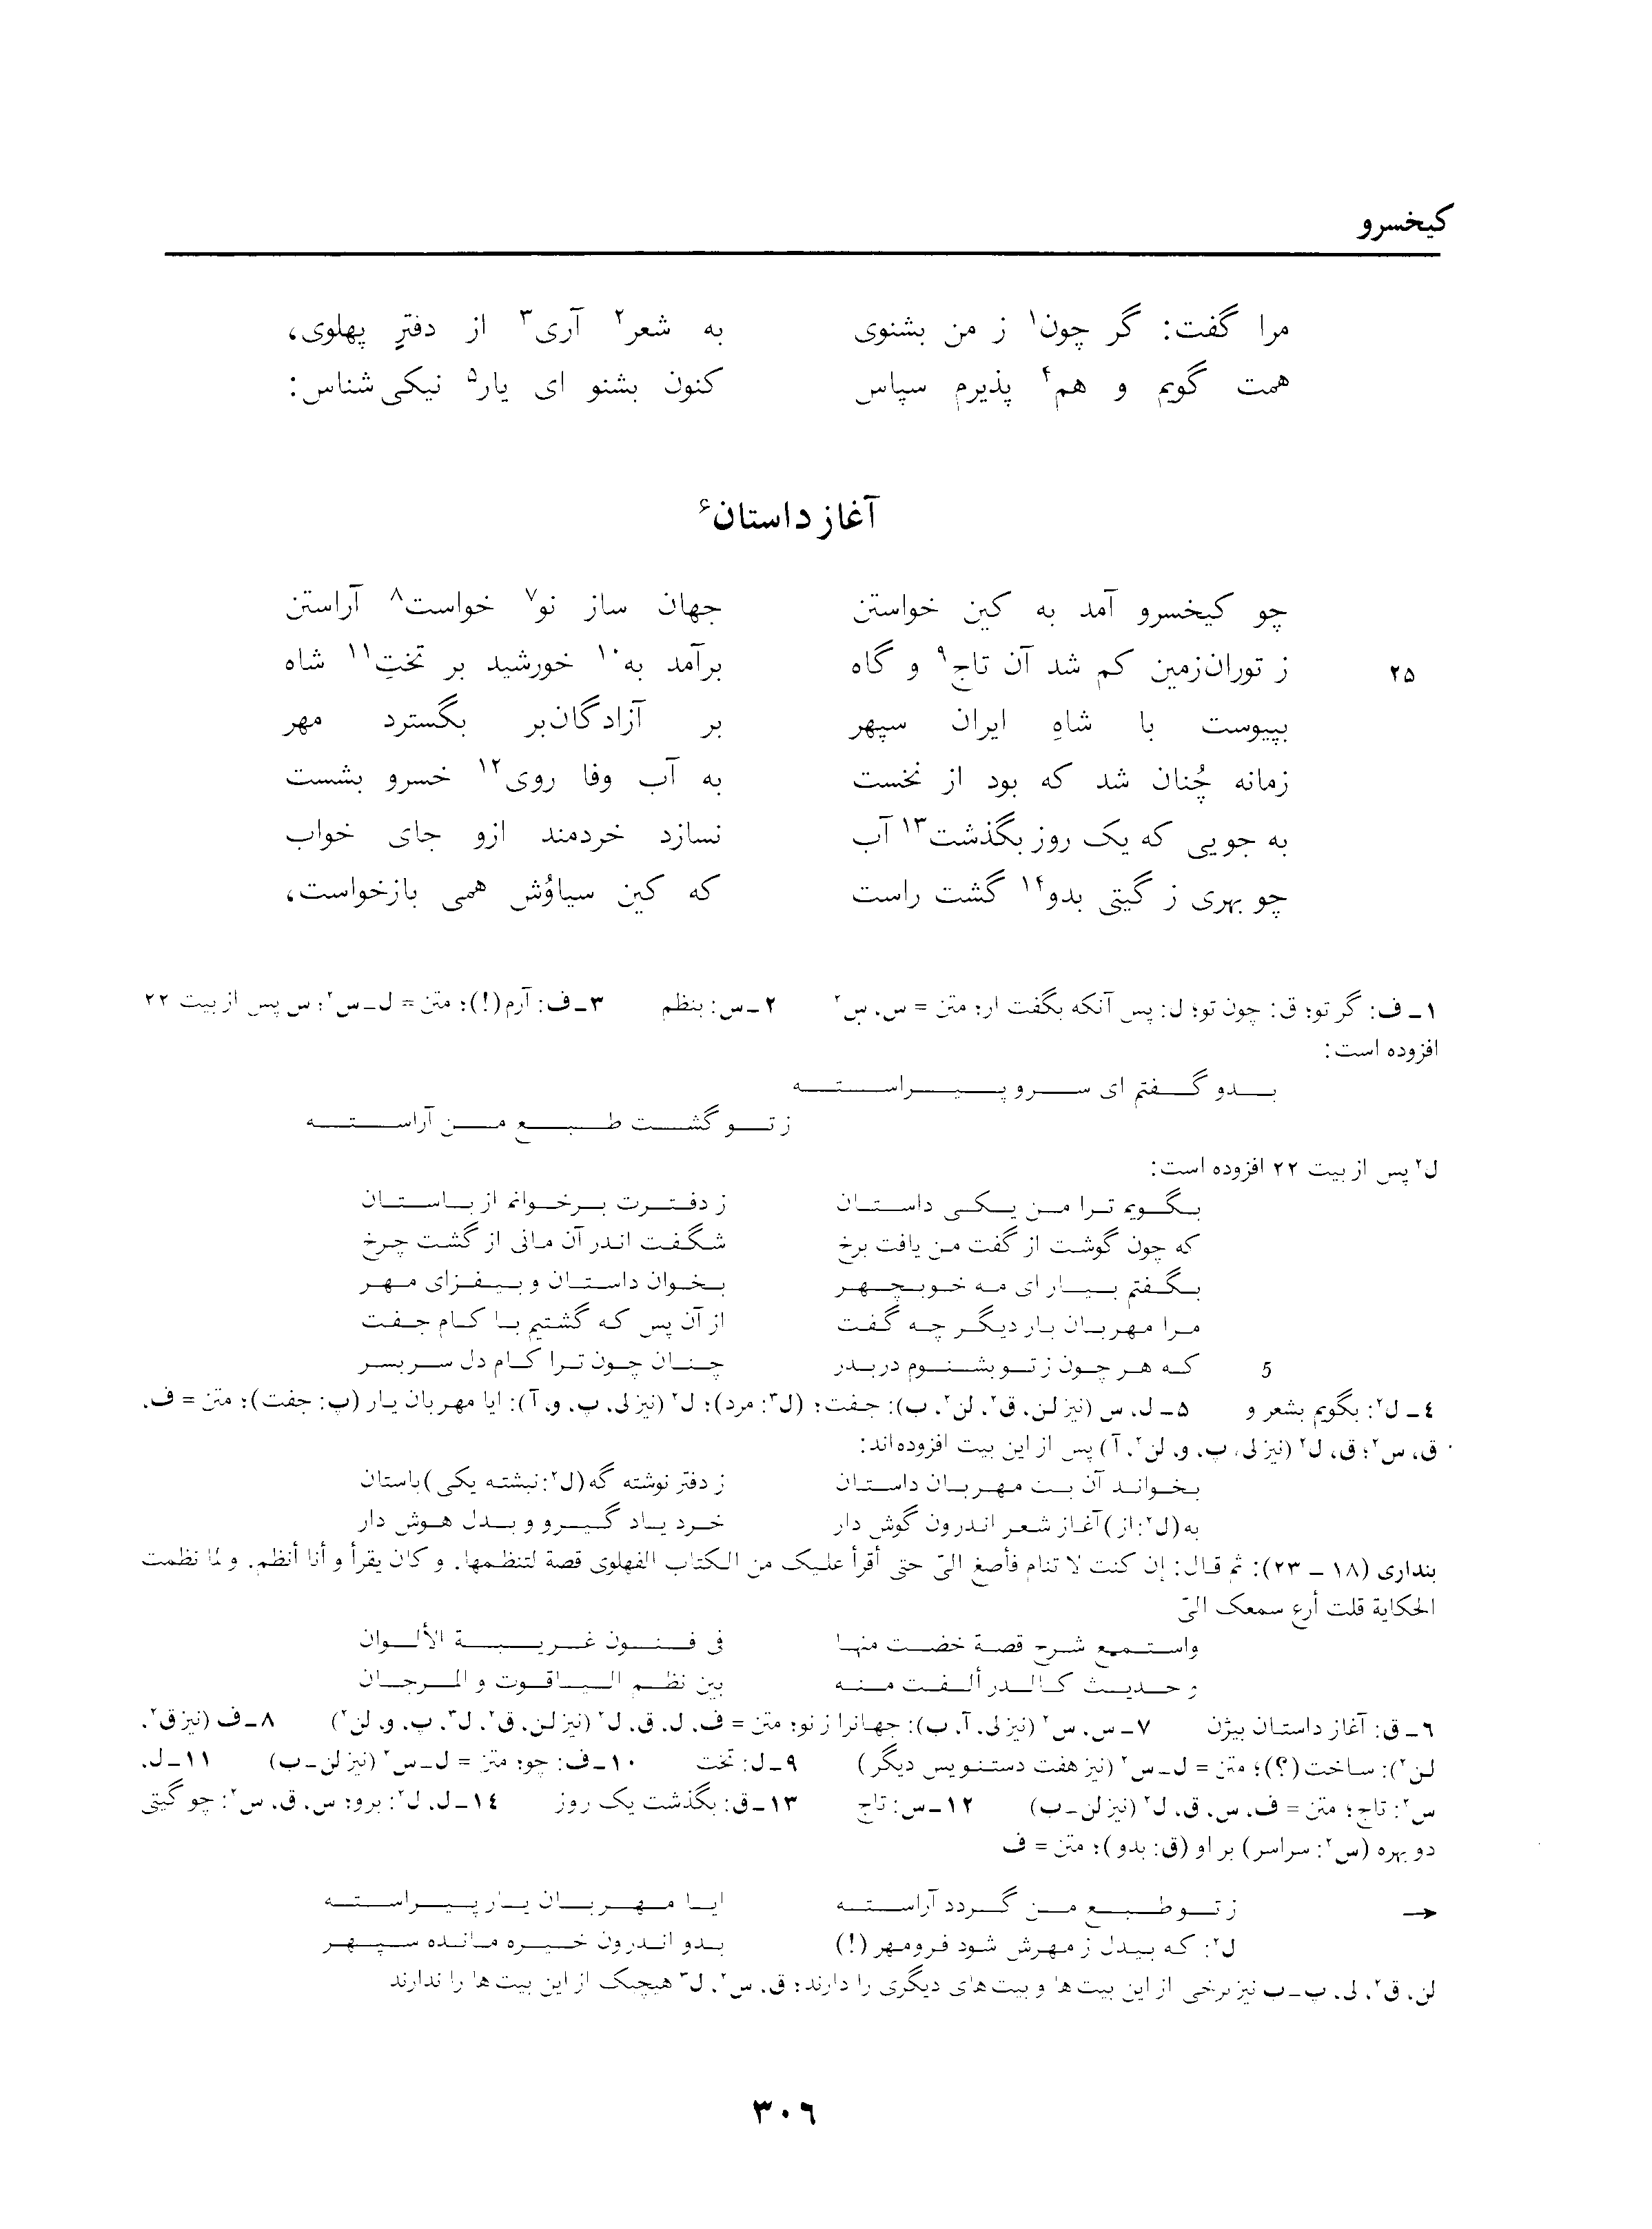 کیخسرو
مرا گفت: گر چون۱ ز من بشنوی به شعر۲ آری۳ از دفترِ پهلوی،
همت گویم و هم۴ پذیرم سپاس کنون بشنو ای یار۵ نیکی‌شناس:
آغاز داستان۶
چو کیخسرو آمد به کین خواستن جهان ساز نو۷ خواست۸ آراستن
۲۵ ز توران‌زمین کم شد آن تاج۹ و گاه برآمد به۱۰ خورشید بر تختِ۱۱ شاه
بپیوست با شاهِ ایران سپهر بر آزادگان‌بر بگسترد مهر
زمانه چُنان شد که بود از نخست به آب وفا روی۱۲ خسرو بشست
به جویی که یک روز بگذشت۱۳ آب نسازد خردمند ازو جای خواب
چو بهری ز گیتی بدو۱۴ گشت راست که کین سیاوُش همی بازخواست،
۱ـ ف: گر تو؛ ق: چون تو؛ ل: پس آنکه بگفت ار؛ متن = س، س۲ ۲ـ س: بنظم ۳ـ ف: آرم (!)؛ متن = ل ـ س۲؛ س پس از بیت ۲۲
افزوده است:
بدو گفتم ای سرو پیراسته
ز تو گشت طبع من آراسته
ل۲ پس از بیت ۲۲ افزوده است:
بگویم ترا من یکی داستان ز دفترت برخوانم از باستان
که چون گوشت از گفت من یافت برخ شگفت اندر آن مانی از گشت چرخ
بگفتم بیار ای مه خوبچهر بخوان داستان و بیفزای مهر
مرا مهربان یار دیگر چه گفت از آن پس که گشتیم با کام جفت
5 که هر چون ز تو بشنوم دربدر چنان چون ترا کام دل سربسر
۴ـ ل۲: بگویم بشعر و ۵ـ ل، س (نیز لن، ق۲، لن۲، ب): جفت؛ (ل۳: مرد)؛ ل۲ (نیز لی، پ، و، آ): ایا مهربان یار (پ: جفت)؛ متن = ف،
ق، س۲؛ ق، ل۲ (نیز لی، پ، و، لن۲، آ) پس از این بیت افزوده‌اند:
بخواند آن بت مهربان داستان ز دفتر نوشته گه (ل۲: نبشته یکی) باستان
به (ل۲: از) آغاز شعر اندرون گوش دار خرد یاد گیر و بدل هوش دار
بنداری (۱۸ ـ ۲۳): ثم قال: إن کنت لا تنام فأصغ الیّ حتی أقرأ علیک من الکتاب الفهلوی قصة لتنظمها. و کان یقرأ و أنا أنظم. و لما نظمت
الحکایة قلت أرع سمعک الیّ
واستمع شرح قصة خضت منها فی فنون غریبة الألوان
و حدیث کالدر ألفت منه بین نظم الیاقوت و المرجان
۶ـ ق: آغاز داستان بیژن ۷ـ س، س۲ (نیز لی، آ، ب): جهانرا ز نو؛ متن = ف، ل، ق، ل۲ (نیز لن، ق۲، ل۳، پ، و، لن۲) ۸ـ ف (نیز ق۲،
لن۲): ساخت (؟)؛ متن = ل ـ س۲ (نیز هفت دستنویس دیگر) ۹ـ ل: تخت ۱۰ـ ف: چو؛ متن = ل ـ س۲ (نیز لن ـ ب) ۱۱ـ ل،
س۲: تاج؛ متن = ف، س، ق، ل۲ (نیز لن ـ ب) ۱۲ـ س: تاج ۱۳ـ ق: بگذشت یک روز ۱۴ـ ل، ل۲: برو؛ س، ق، س۲: چو گیتی
دو بهره (س۲: سراسر) بر او (ق: بدو)؛ متن = ف
→ ز تو طبع من گردد آراسته ایا مهربان یار پیراسته
ل۲: که بیدل ز مهرش شود فرومهر (!) بدو اندرون خیره مانده سپهر
لن، ق۲، لی، پ ـ ب نیز برخی از این بیت‌ها و بیت‌های دیگری را دارند؛ ق، س۲، ل۳ هیچیک از این بیت‌ها را ندارند
۳۰۶